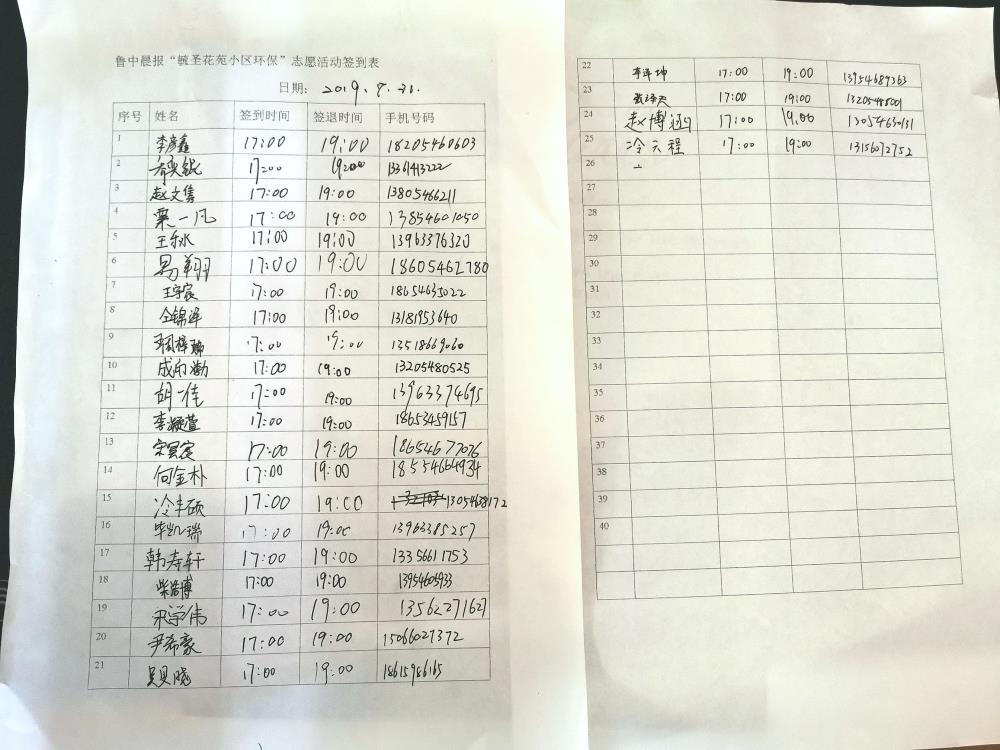 鲁中晨报“毓圣花苑小区环保”志愿活动签到表
日期: 2019.8.31.
序号 姓名 签到时间 签退时间 手机号码
1 李彦鑫 17:00 19:00 18205460603
2 17:00 19:00
3 赵文隽 17:00 19:00 13805466211
4 栗一凡 17:00 19:00 13854601050
5 王秋冰 17:00 19:00 13963376320
6 易翔 17:00 19:00 18605462780
7 王宇宸 17:00 19:00 18654635022
8 仝锦泽 17:00 19:00 13181953640
9 17:00 19:00 13518669060
10 成雨瀚 17:00 19:00 13205480525
11 胡一佳 17:00 19:00 13963374695
12 李凝萱 17:00 19:00 18653459157
13 宋昊宸 17:00 19:00 18654677076
14 何金朴 17:00 19:00 18554664934
15 冷丰硕 17:00 19:00 13054638172
16 毕凯瑞 17:00 19:00 13963385257
17 韩寿轩 17:00 19:00 13356611753
18 柴浩博 17:00 19:00 13954605933
19 宋学伟 17:00 19:00 13562271627
20 尹希豪 17:00 19:00 15066027372
21 吴贝晓 17:00 19:00 18615986165
22 李泽坤 17:00 19:00 13954689363
23 17:00 19:00 13205488001
24 赵博涵 17:00 19:00 13054630131
25 冷天程 17:00 19:00 13156072752
26
27
28
29
30
31
32
33
34
35
36
37
38
39
40